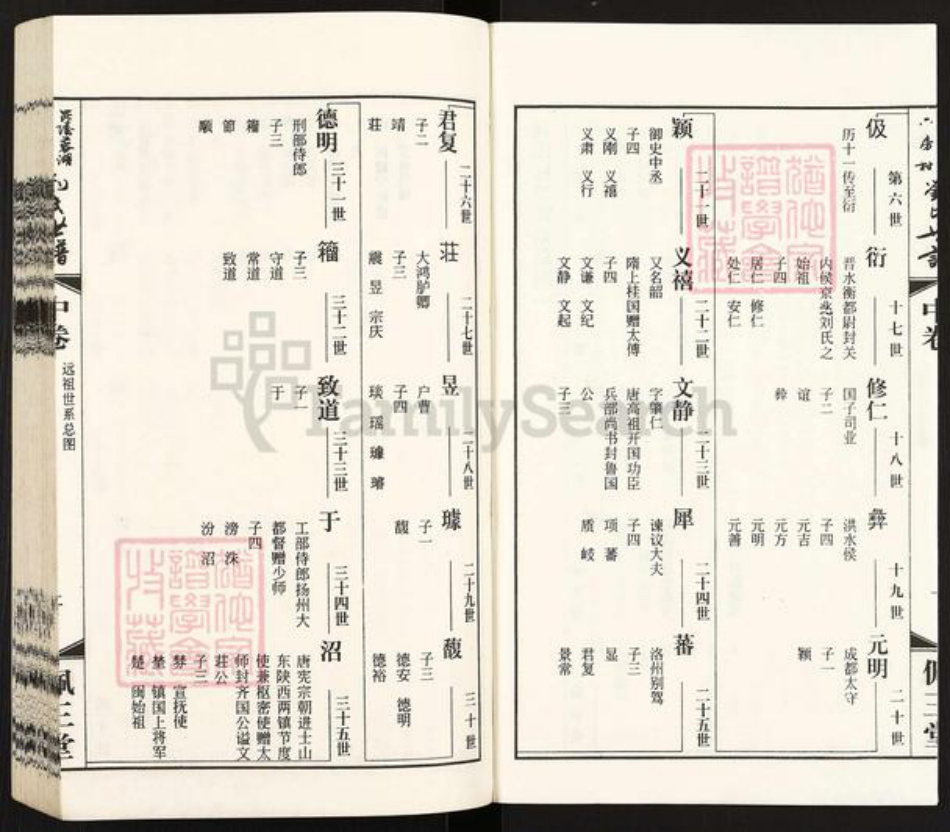 伋
第六世
历十一传至衍
衍
十七世
晋水衡都尉封关
内侯京兆刘氏之
始祖
子四
居仁 修仁
处仁 安仁
修仁
十八世
国子司业
子二
谊
彝
彝
十九世
洪水侯
子四
元吉
元方
元明
元善
元明
二十世
成都太守
子一
颖
颖
二十一世
御史中丞
子四
义刚 义禧
义肃 义行
义禧
二十二世
又名韶
隋上桂国赠太傅
子四
文谦 文纪
文静 文起
文静
二十三世
字肇仁
唐高祖开国功臣
兵部尚书封鲁国
公
子三
犀
二十四世
谏议大夫
子四
项 蕃
质 岐
蕃
二十五世
洛州别驾
子三
显
君复
景常
君复
二十六世
子二
靖
荘
荘
二十七世
大鸿胪卿
子三
震 昱 宗庆
昱
二十八世
户曹
子四
琰 瑶 璩 璿
璩
二十九世
子一
馥
馥
三十世
子三
德安 德明
德裕
德明
三十一世
刑部侍郎
子三
籀
节
顺
籀
三十二世
子三
守道
常道
致道
致道
三十三世
子一
于
于
三十四世
工部侍郎扬州大
都督赠少师
子四
滂 洙
汾 沼
沼
三十五世
唐宪宗朝进士山
东陕西两镇节度
使兼枢密使赠太
师封齐国公谥文
荘公
子三
棼 宣抚使
镇国上将军
楚 闽始祖
中卷
远祖世系总图
佩三堂
FamilySearch